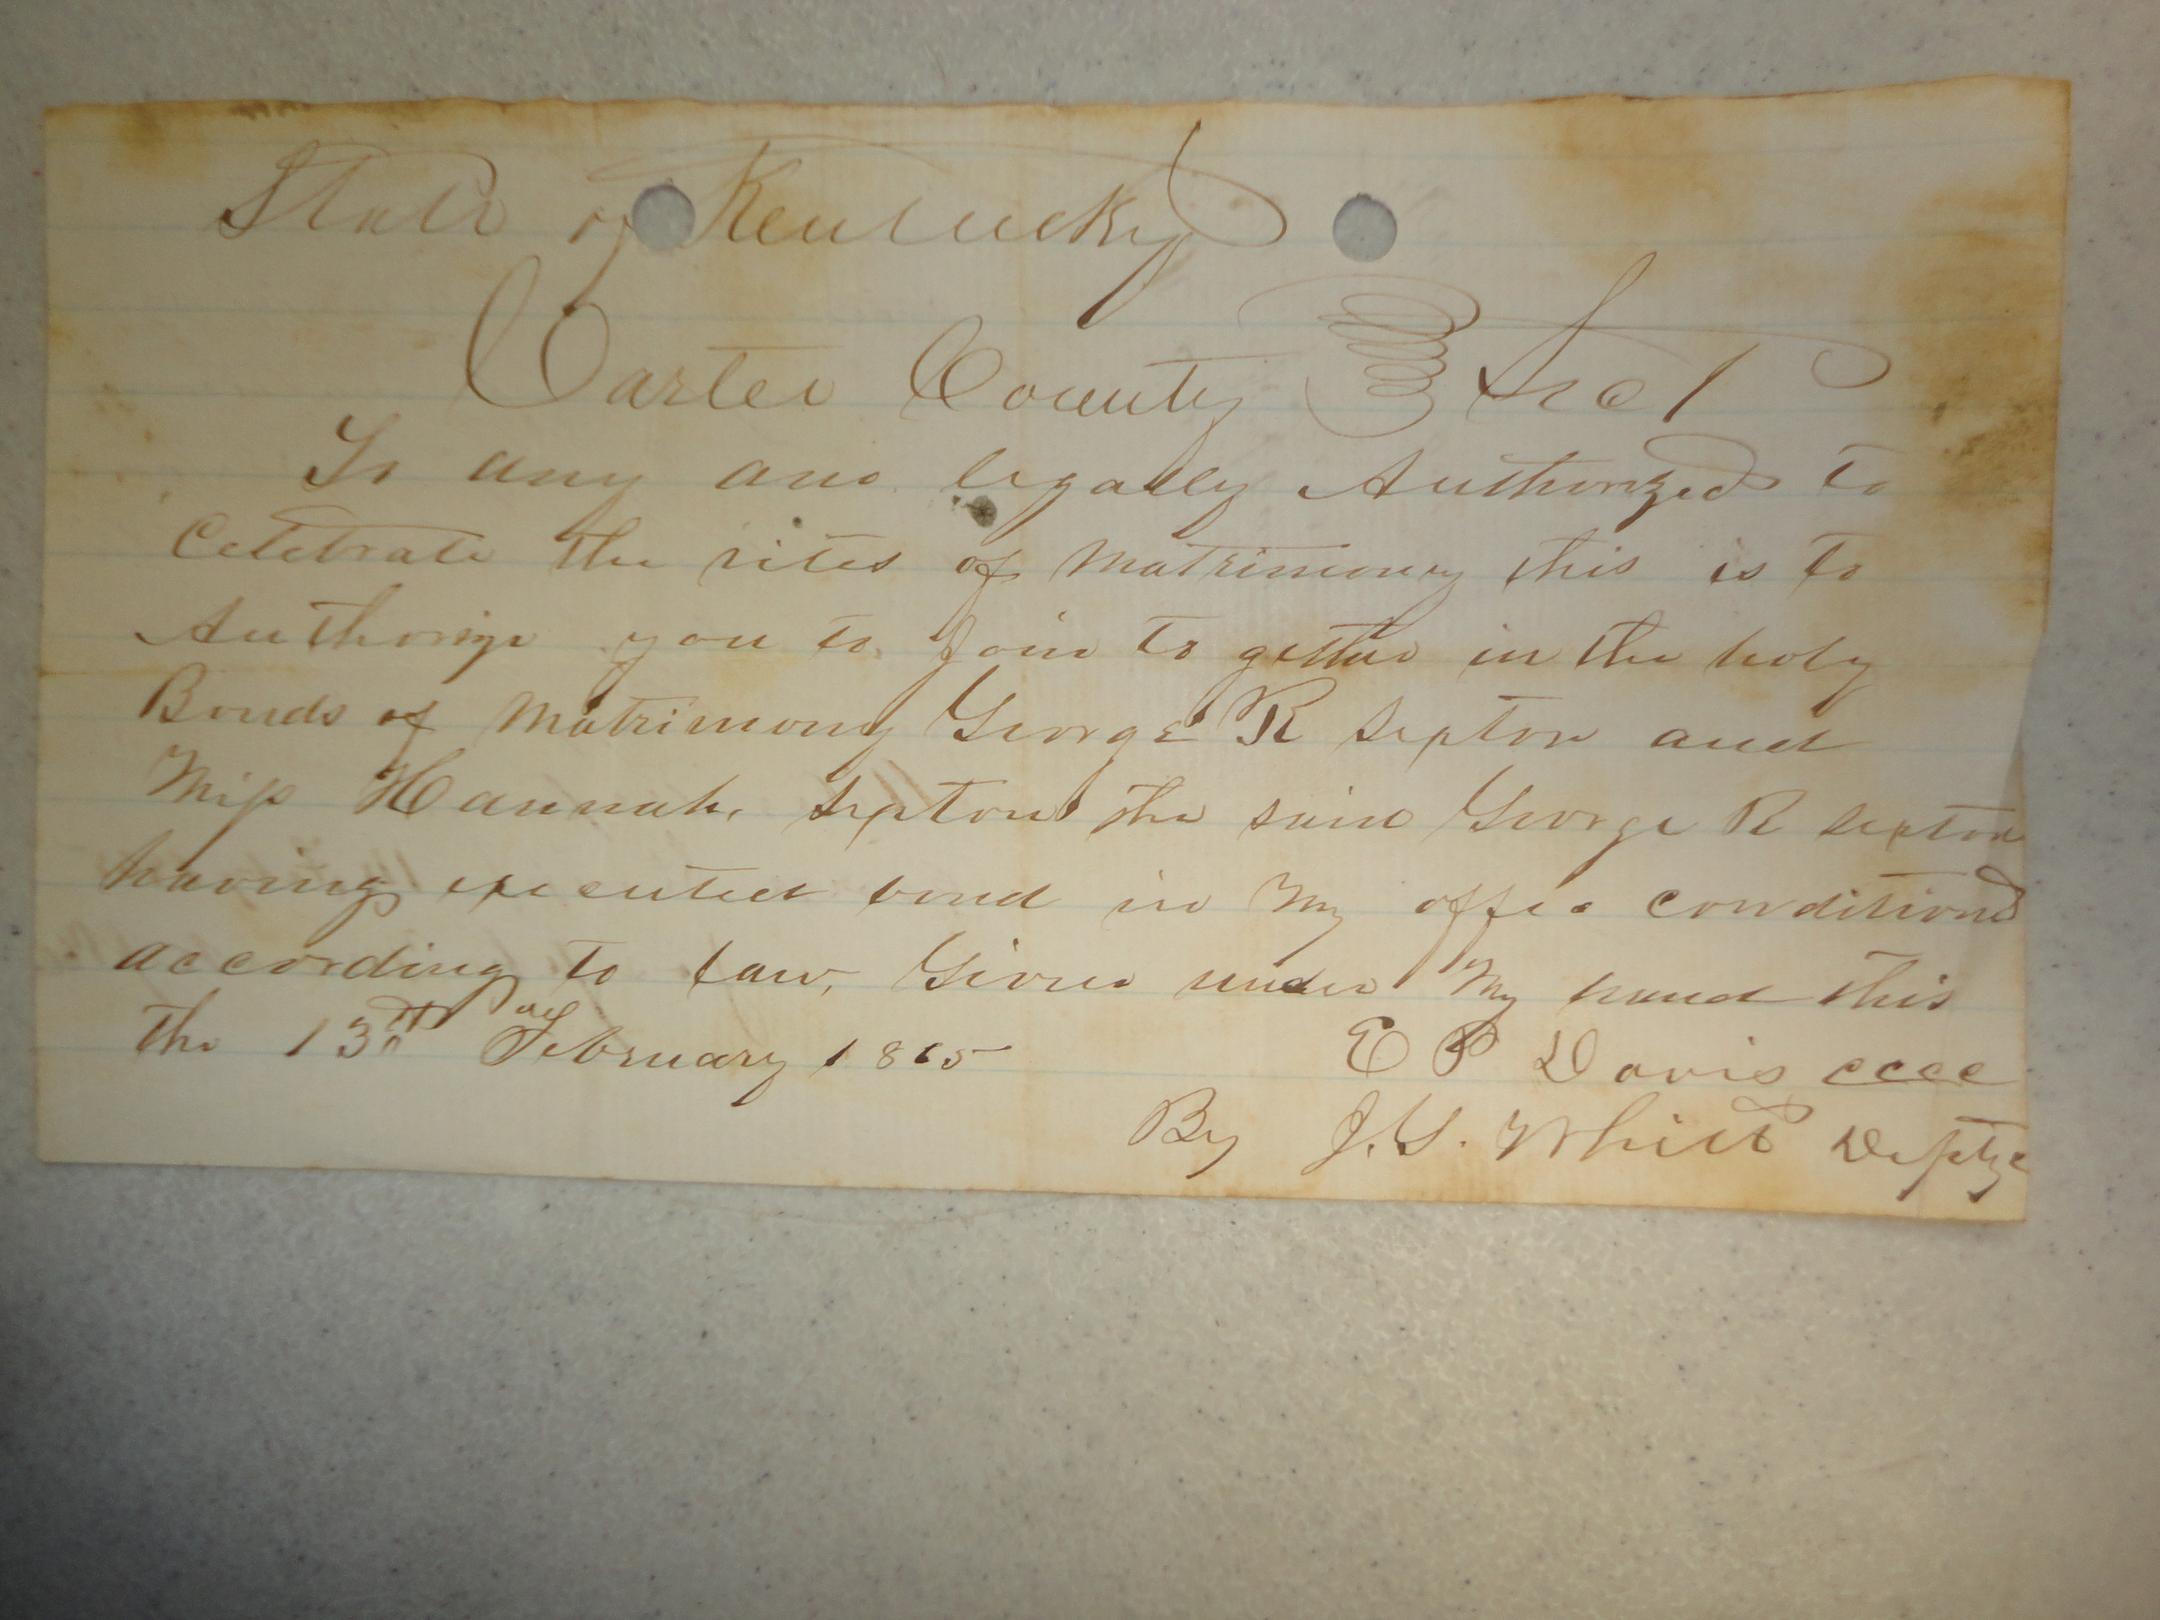 State of Kentucky
Carter County Sct
To any one legally Authorized to
Celebrate the rites of Matrimony this is to
Authorize you to Join to gether in the holy
Bonds of Matrimony George R Sexton and
Miss Hannah Sexton the said George R Sexton
having executed bond in My office conditioned
according to law, Given under My hand this
the 13th of February 1865 E P Davis cccc
By J. S. Whitt Deptyc